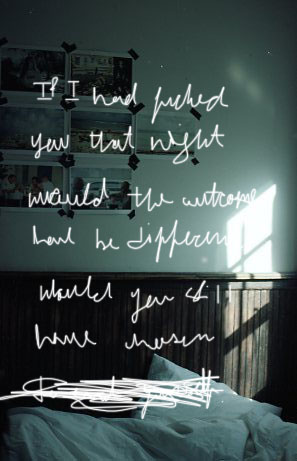 If I had picked
you that night
would the outcome
have be differen
would you sti
have chosen